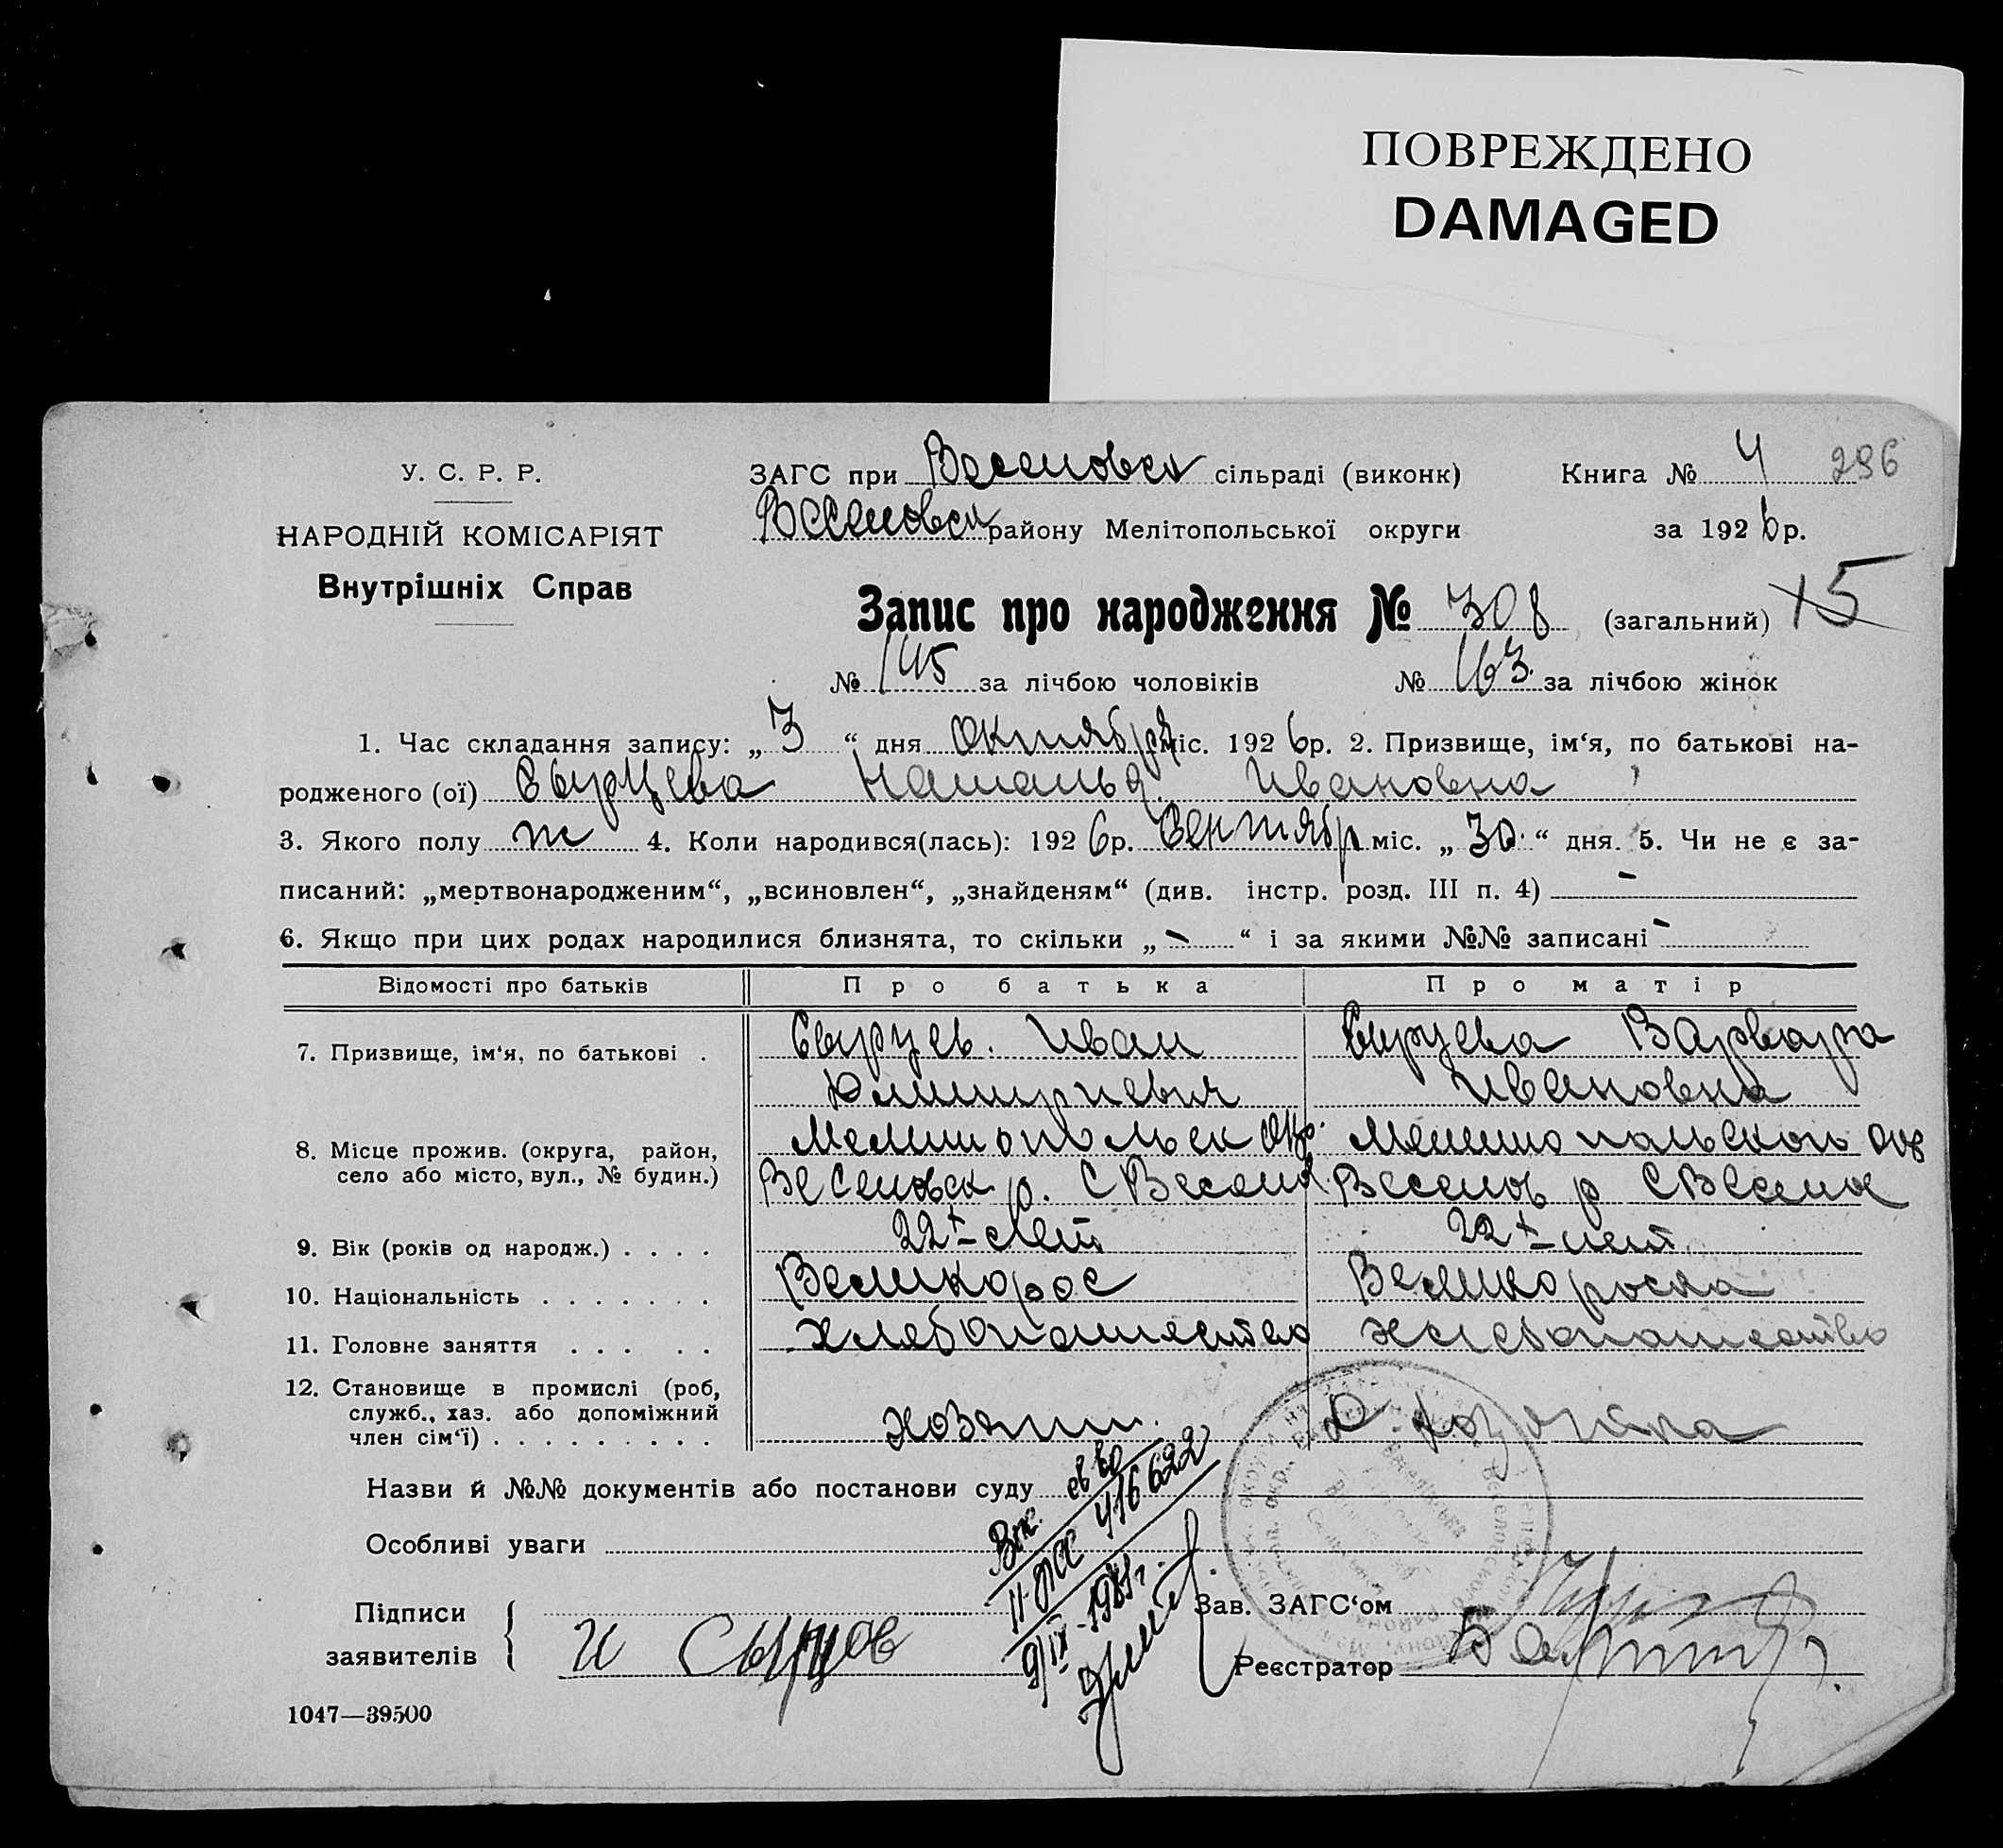 ПОВРЕЖДЕНО
DAMAGED
У. С. Р. Р.
НАРОДНІЙ КОМІСАРІЯТ
Внутрішніх Справ
ЗАГС при Веселовск сільраді (виконк) Книга № 4 296
Веселовск району Мелітопольської округи за 1926 р.
Запис про народження № 308 (загальний) 15
№ 145 за лічбою чоловіків № 163 за лічбою жінок
1. Час складання запису: „3“ дня октября міс. 1926 р. 2. Призвище, ім‘я, по батькові на-
родженого (ої) Сырцева Наталья Ивановна
3. Якого полу ж 4. Коли народився(лась): 1926 р. Сентябр міс. „30“ дня. 5. Чи не є за-
писаний: „мертвонародженим“, „всиновлен“, „знайденям“ (див. інстр. розд. III п. 4) –
6. Якщо при цих родах народилися близнята, то скільки „–“ і за якими №№ записані –
Відомості про батьків Про батька Про матір
7. Призвище, ім‘я, по батькові . Сырцев. Иван Сырцева Варвара
Дмитриевич Ивановна
8. Місце прожив. (округа, район, село або місто, вул., № будин.) Мелитопольск окр. Мелитопольской окр
Веселовск. р. С Весело Веселов р С Весело
9. Вік (років од народж.) . . . . 22 лет 22 лет
10. Національність . . . . . . . Великорос Великороска
11. Головне заняття . . . . . Хлебопашество хлебопашество
12. Становище в промислі (роб, служб., хаз. або допоміжний член сім‘ї) . . . . . . . . . хозяин.
Назви й №№ документів або постанови суду
Особливі уваги
II 416622
Підписи заявителів И Сырцов
Зав. ЗАГС‘ом
Реєстратор
1047—39500